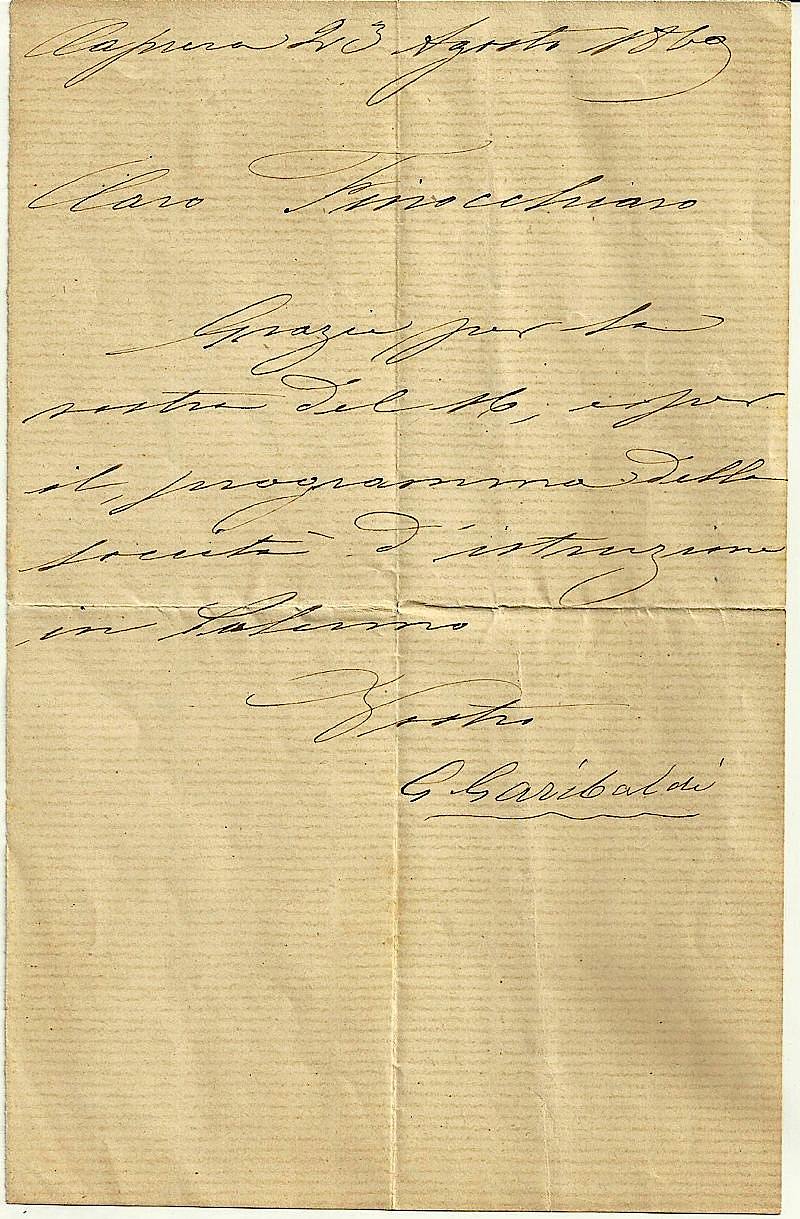 Caprera 23 Agosto 1869
Caro Finocchiaro
Grazie per la
vostra del 16, e per
il programma della
società d'istruzione
in Palermo
Vostro
G Garibaldi